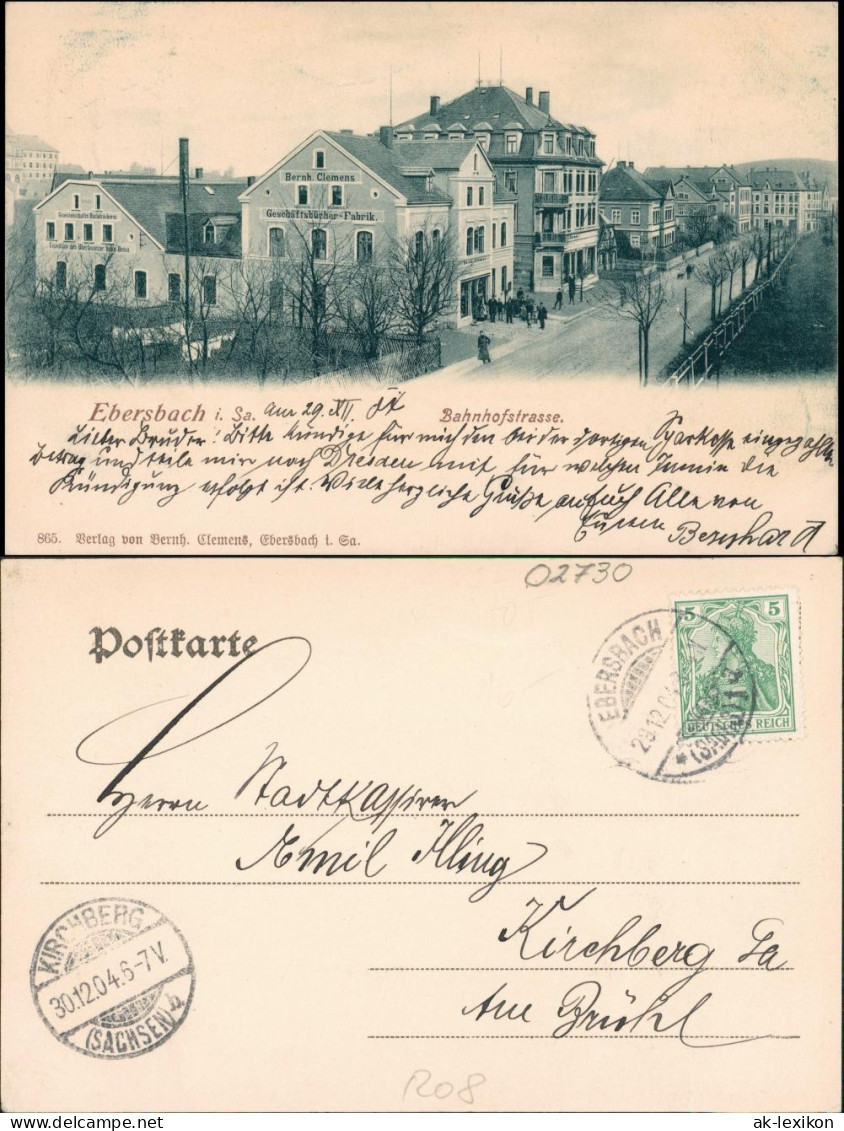 Bernh. Clemens
Geschäftsbücher-Fabrik.
Ebersbach i. Sa. am 29. XII. 04
Bahnhofstrasse.
Lieber Bruder! Bitte kündige für mich den bei der dortigen Sparkasse eingezahlten
Betrag und teile mir nach Dresden mit, für welchen Termin die
Kündigung erfolgt ist. Viele herzliche Grüße an Euch Alle von
Eurem Bernhard
865. Verlag von Bernh. Clemens, Ebersbach i. Sa.
02730
Postkarte
EBERSBACH
29.12.04
(SACHSEN)
5 5
DEUTSCHES REICH
Herrn Stadtkassirer
Emil Illing
Kirchberg Sa
Am Brühl
KIRCHBERG
30.12.04.6-7V.
(SACHSEN)
R08
ak-lexikon